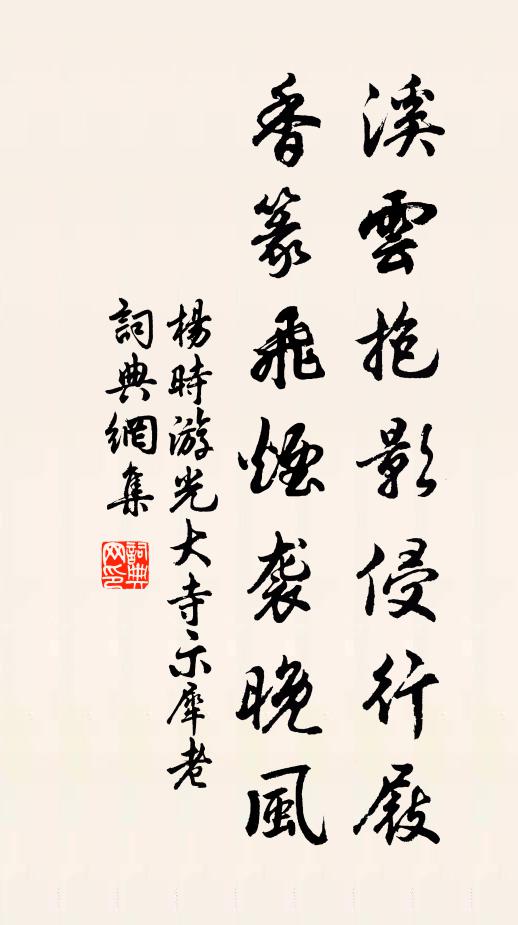 溪雲抱影侵行屐
香篆飛煙袭晚風
楊時游光大寺示犀老
詞典網集
詞典
网印